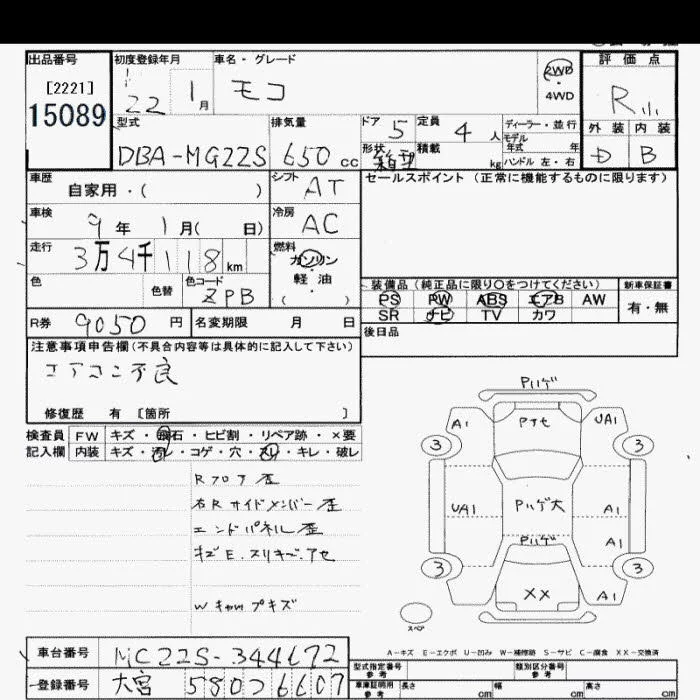 出品番号
[2221]
15089
初度登録年月
22 1月
車名・グレード
モコ
2WD
・
4WD
評価点
R
外装 内装
D B
型式
DBA-MG22S
排気量
650cc
ドア 5
定員 4人
形状 箱型
積載 kg
ディーラー・並行
モデル
年式 年
ハンドル 左・右
車歴
自家用・( )
シフト
AT
セールスポイント (正常に機能するものに限ります)
車検
9年 1月( 日)
冷房
AC
走行
3万4千118km
燃料
ガソリン
・
軽油
( )
色
色替
色コード
ZPB
装備品(純正品に限り○をつけてください)
PS PW ABS エアB AW
SR ナビ TV カワ
新車保証書
有・無
R券 9050円
名変期限 月 日
後日品
注意事項申告欄(不具合内容等は具体的に記入して下さい)
エアコン不良
修復歴 有 [箇所 ]
検査員
記入欄
FW キズ・飛石・ヒビ割・リペア跡・×要
内装 キズ・汚レ・コゲ・穴・スレ・キレ・破レ
Rフロア歪
右Rサイドメンバー歪
エンドパネル歪
キズE.スリキズ.アセ
Wキャップキズ
Pハゲ
A1
Pアセ
UA1
3
3
UA1
Pハゲ大
A1
A1
Pハゲ
3
3
XX
A1
スペア
A-キズ E-エクボ U-凹み W-補修跡 S-サビ C-腐食 XX-交換済
車台番号
MG22S-344672
登録番号
大宮 580 2 6607
型式指定番号
参考
類別区分番号
参考
車庫証明用
参考
長さ cm
幅 cm
高さ cm